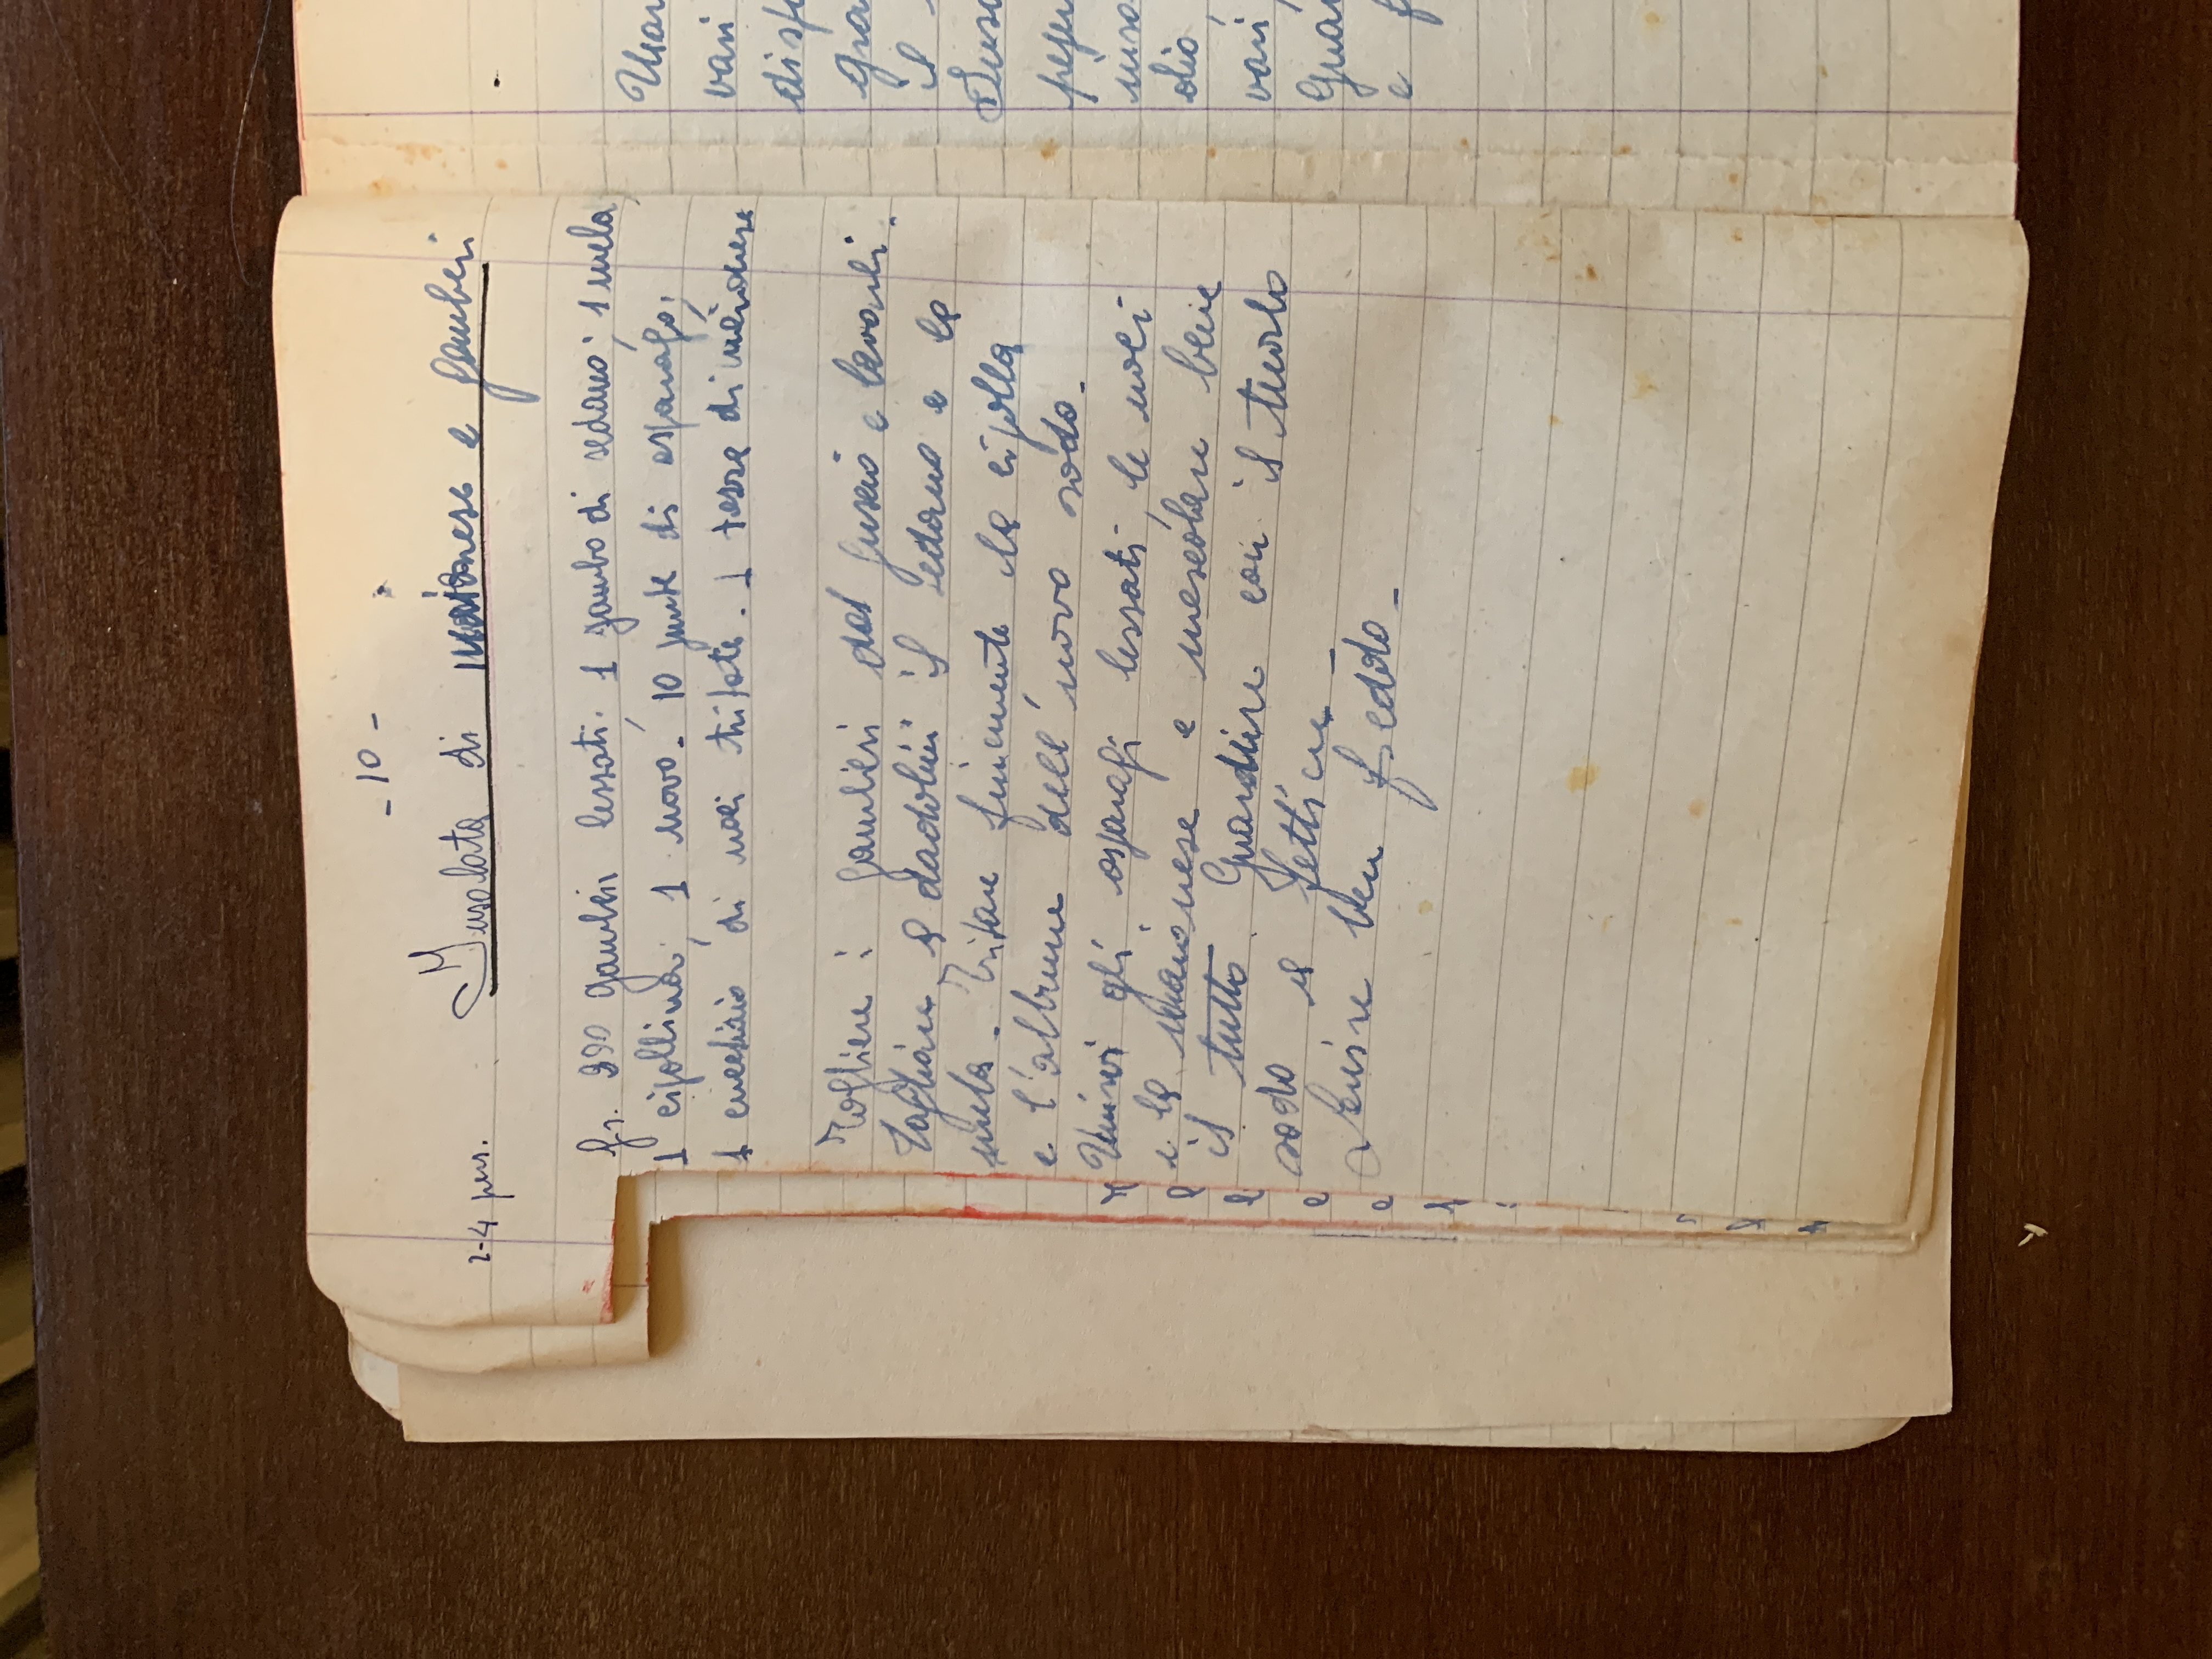 - 10 -
2-4 pers. Insalata di maionese e gamberi
gr. gamberi lessati; 1 gambo di sedano; 1 mela,
1 cipollina; 1 uovo. 10 punte di asparago;
1 cucchiaio di noci tritate. 1 tazza di maionese
Togliere i gamberi dal guscio e lavarli.
Tagliare a dadolini il sedano e la
mela. Tritare finemente la cipolla
e l'albume dell'uovo sodo.
Unirvi gli asparagi lessati, le noci
e la maionese e mescolare bene
il tutto. Guarnire con il tuorlo
sodo a fettine -
Servire ben freddo -
Usar
vari
disp
gra
il
Insa
peper
insa
olio,
vari,
Guar
e f